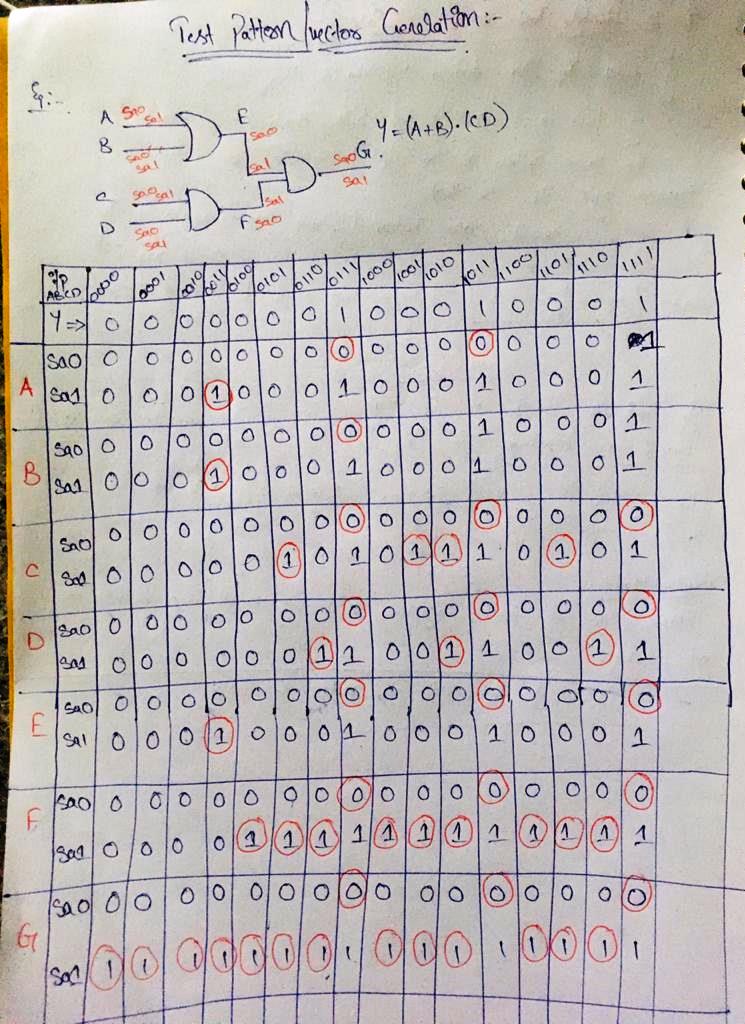 Test Pattern/vector Generation:-
Eg:-
A sa0 sa1 E
sa0 Y=(A+B)·(CD)
B sa0 sa1 sa1 sa0 G
sa1
C sa0 sa1 sa1
D sa0 sa1 F sa0
i/p ABCD 0000 0001 0010 0011 0100 0101 0110 0111 1000 1001 1010 1011 1100 1101 1110 1111
Y⇒ 0 0 0 0 0 0 0 1 0 0 0 1 0 0 0 1
A
Sa0 0 0 0 0 0 0 0 0 0 0 0 0 0 0 0 1
Sa1 0 0 0 1 0 0 0 1 0 0 0 1 0 0 0 1
B
Sa0 0 0 0 0 0 0 0 0 0 0 0 1 0 0 0 1
Sa1 0 0 0 1 0 0 0 1 0 0 0 1 0 0 0 1
C
Sa0 0 0 0 0 0 0 0 0 0 0 0 0 0 0 0 0
Sa1 0 0 0 0 0 1 0 1 0 1 1 1 0 1 0 1
D
Sa0 0 0 0 0 0 0 0 0 0 0 0 0 0 0 0 0
Sa1 0 0 0 0 0 0 1 1 0 0 1 1 0 0 1 1
E
Sa0 0 0 0 0 0 0 0 0 0 0 0 0 0 0 0 0
Sa1 0 0 0 1 0 0 0 1 0 0 0 1 0 0 0 1
F
Sa0 0 0 0 0 0 0 0 0 0 0 0 0 0 0 0 0
Sa1 0 0 0 0 1 1 1 1 1 1 1 1 1 1 1 1
G
Sa0 0 0 0 0 0 0 0 0 0 0 0 0 0 0 0 0
Sa1 1 1 1 1 1 1 1 1 1 1 1 1 1 1 1 1